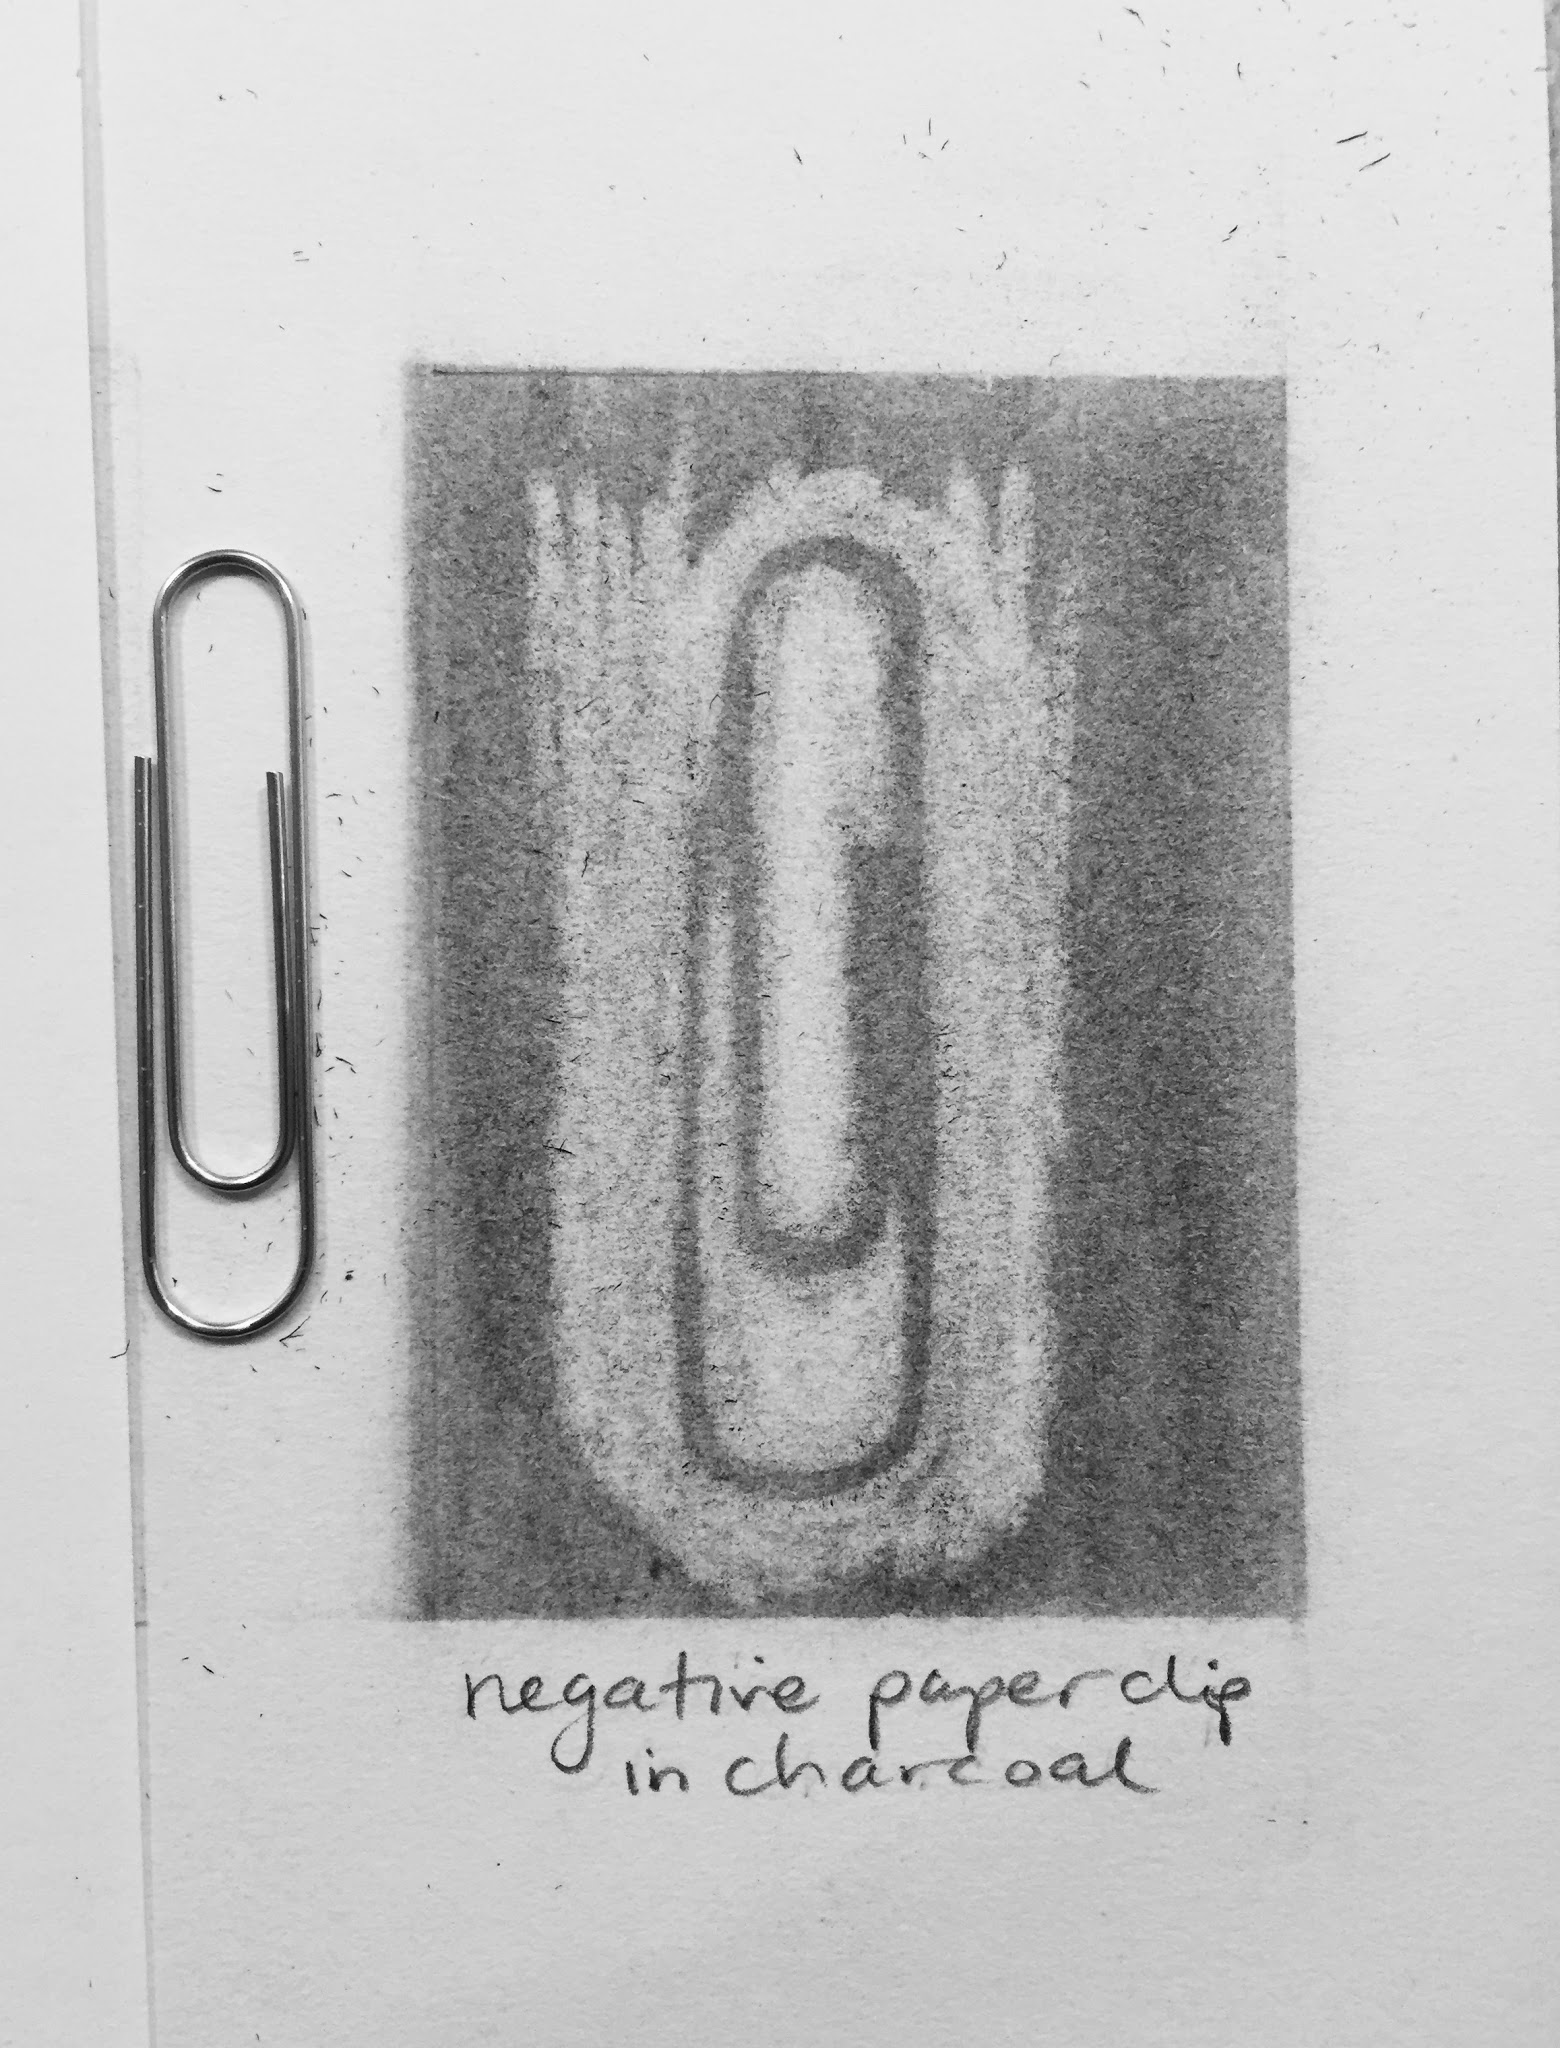 negative paperclip
in charcoal